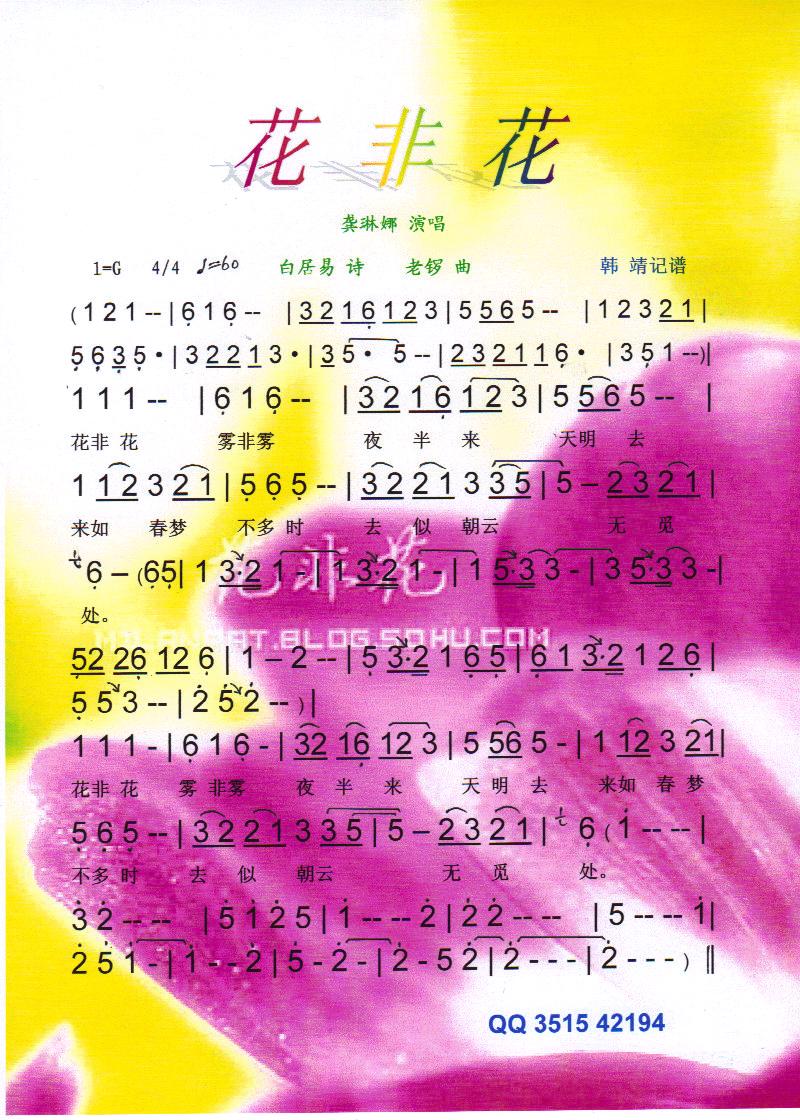 花 非 花
龚琳娜 演唱
1=G 4/4 ♩=60 白居易 诗 老锣 曲 韩 靖记谱
( 1 2 1 -- | 6 1 6 -- | 3 2 1 6 1 2 3 | 5 5 6 5 -- | 1 2 3 2 1 |
5 6 3 5 · | 3 2 2 1 3 · | 3 5 · 5 -- | 2 3 2 1 1 6 · | 3 5 1 -- )|
1 1 1 -- | 6 1 6 -- | 3 2 1 6 1 2 3 | 5 5 6 5 -- |
花非 花 雾非雾 夜 半 来 天明 去
1 1 2 3 2 1 | 5 6 5 -- | 3 2 2 1 3 3 5 | 5 – 2 3 2 1 |
来如 春梦 不多 时 去 似 朝云 无 觅
6 – ( 6 5 | 1 3·2 1 - | 1 3·2 1 - | 1 5·3 3 - | 3 5·3 3 - |
处。
花非花
MYLANBBT.BLOG.SOHU.COM
52 26 12 6 | 1 – 2 -- | 5 3·2 1 6 5 | 6 1 3·2 1 2 6 |
5 5 3 -- | 2 5 2 -- ) |
1 1 1 - | 6 1 6 - | 32 16 12 3 | 5 56 5 - | 1 12 3 21 |
花非 花 雾 非雾 夜 半 来 天 明 去 来如 春 梦
5 6 5 -- | 3 2 2 1 3 3 5 | 5 – 2 3 2 1 | 6 ( 1 -- -- |
不多 时 去 似 朝云 无 觅 处。
3 2 -- -- | 5 1 2 5 | 1 -- -- 2 | 2 2 -- -- | 5 -- -- 1 |
2 5 1 - | 1 - - 2 | 5 - 2 - | 2 - 5 2 | 2 - - - | 2 - - - ) ‖
QQ 3515 42194